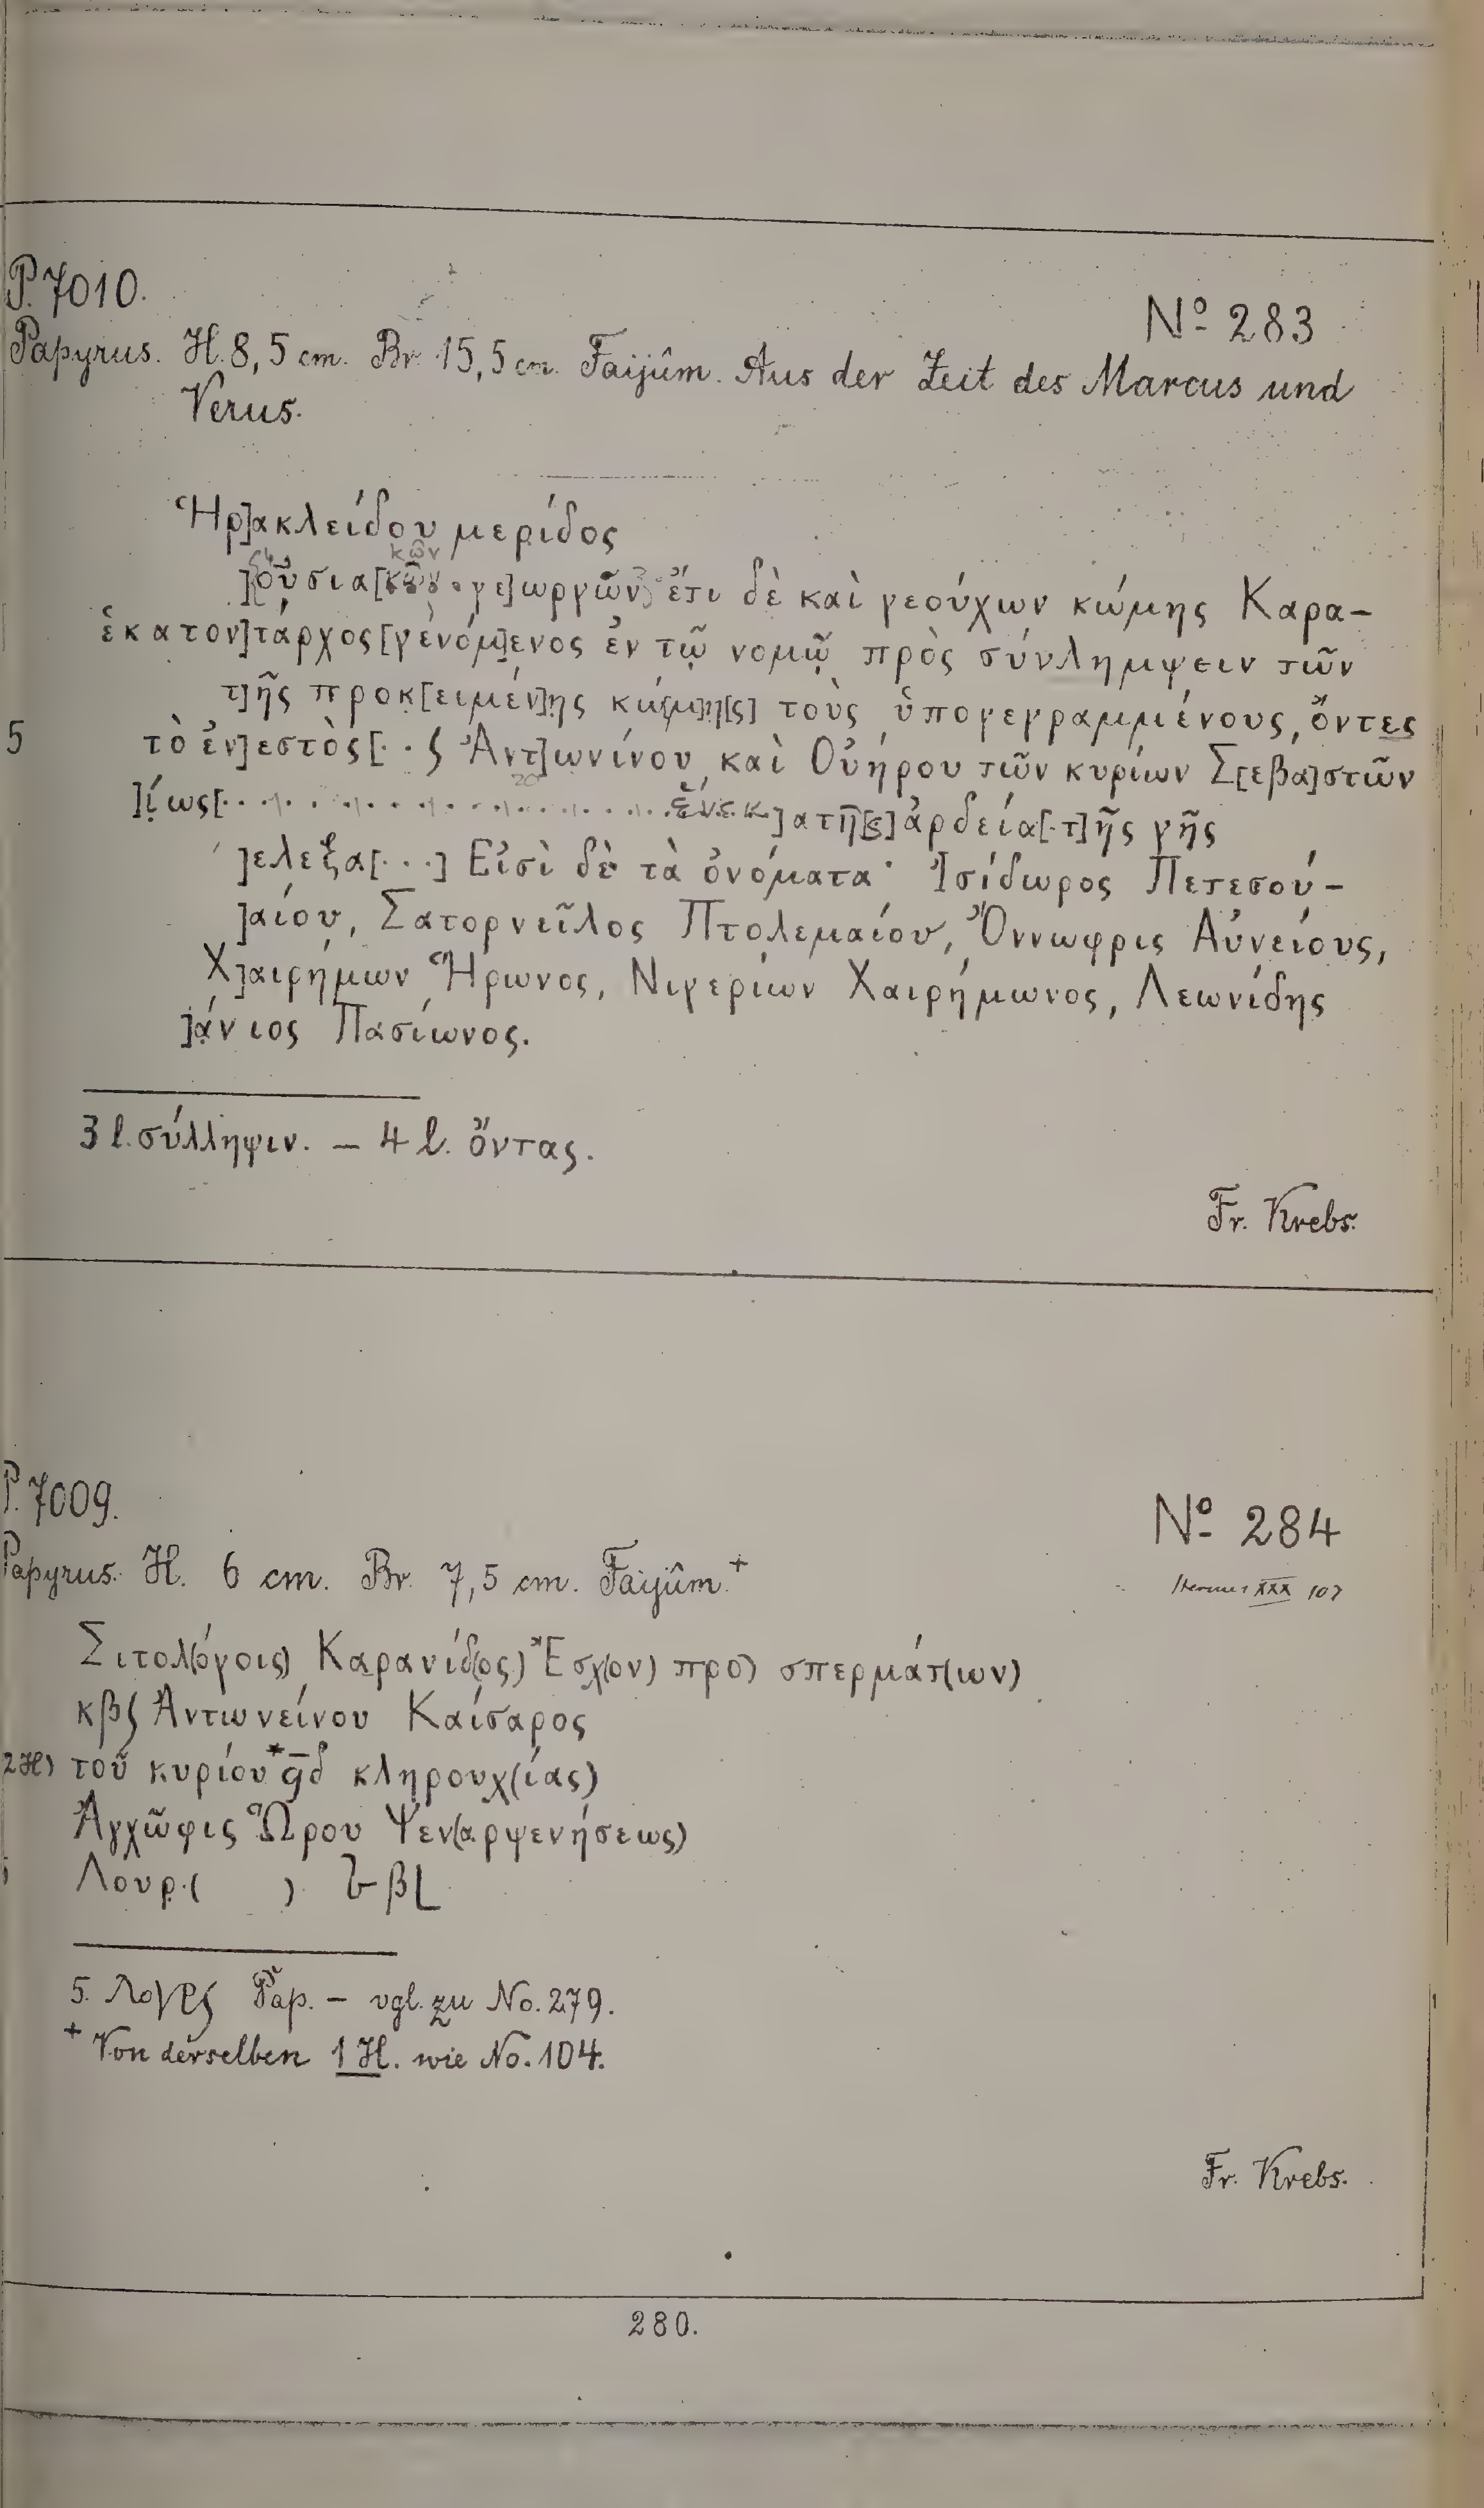 P. 7010.
No 283
Papyrus. H. 8,5 cm. Br. 15,5 cm. Faijûm. Aus der Zeit des Marcus und
Verus.
Ἡρ]ακλείδου μερίδος
κῶν
]οὐσια[κῶν . γε]ωργῶν ἔτι δὲ καὶ γεούχων κώμης Καρα-
ἑκατον]τάρχος [γενόμ]ενος ἐν τῷ νομῷ πρὸς σύνλημψειν τῶν
τ]ῆς προκ[ειμέν]ης κώ[μ]η[ς] τοὺς ὑπογεγραμμένους, ὄντες
5 τὸ ἐν]εστὸς [. . ʃ Ἀντ]ωνίνου καὶ Οὐήρου τῶν κυρίων Σ[εβα]στῶν
20
]ίως [. . . . . . . . . . . . . . . . ἕνεκ]α τῆ[ς] ἀρδεία[. τ]ῆς γῆς
]ελεξα[. . .] Εἰσὶ δὲ τὰ ὀνόματα· Ἰσίδωρος Πετεσού-
]αίου, Σατορνεῖλος Πτολεμαίου, Ὄννωφρις Αὐνείους,
Χ]αιρήμων Ἥρωνος, Νιγερίων Χαιρήμωνος, Λεωνίδης
]άνιος Πασίωνος.
3 l. σύλληψιν. — 4 l. ὄντας.
Fr. Krebs.
P. 7009.
No 284
Papyrus. H. 6 cm. Br. 7,5 cm. Faijûm.+
Hermes XXX 107
Σιτολ(όγοις) Καρανίδ(ος) Ἔσχ(ον) προ) σπερμάτ(ων)
κβʃ Ἀντωνείνου Καίσαρος
2H) τοῦ κυρίου * q̄δ κληρουχ(ίας)
Ἀγχῶφις Ὥρου Ψεν(αρψενήσεως)
Λουρ.( ) 𐅷 β L
5. Pap. — vgl. zu No. 279.
+ Von derselben 1 H. wie No. 104.
Fr. Krebs.
280.